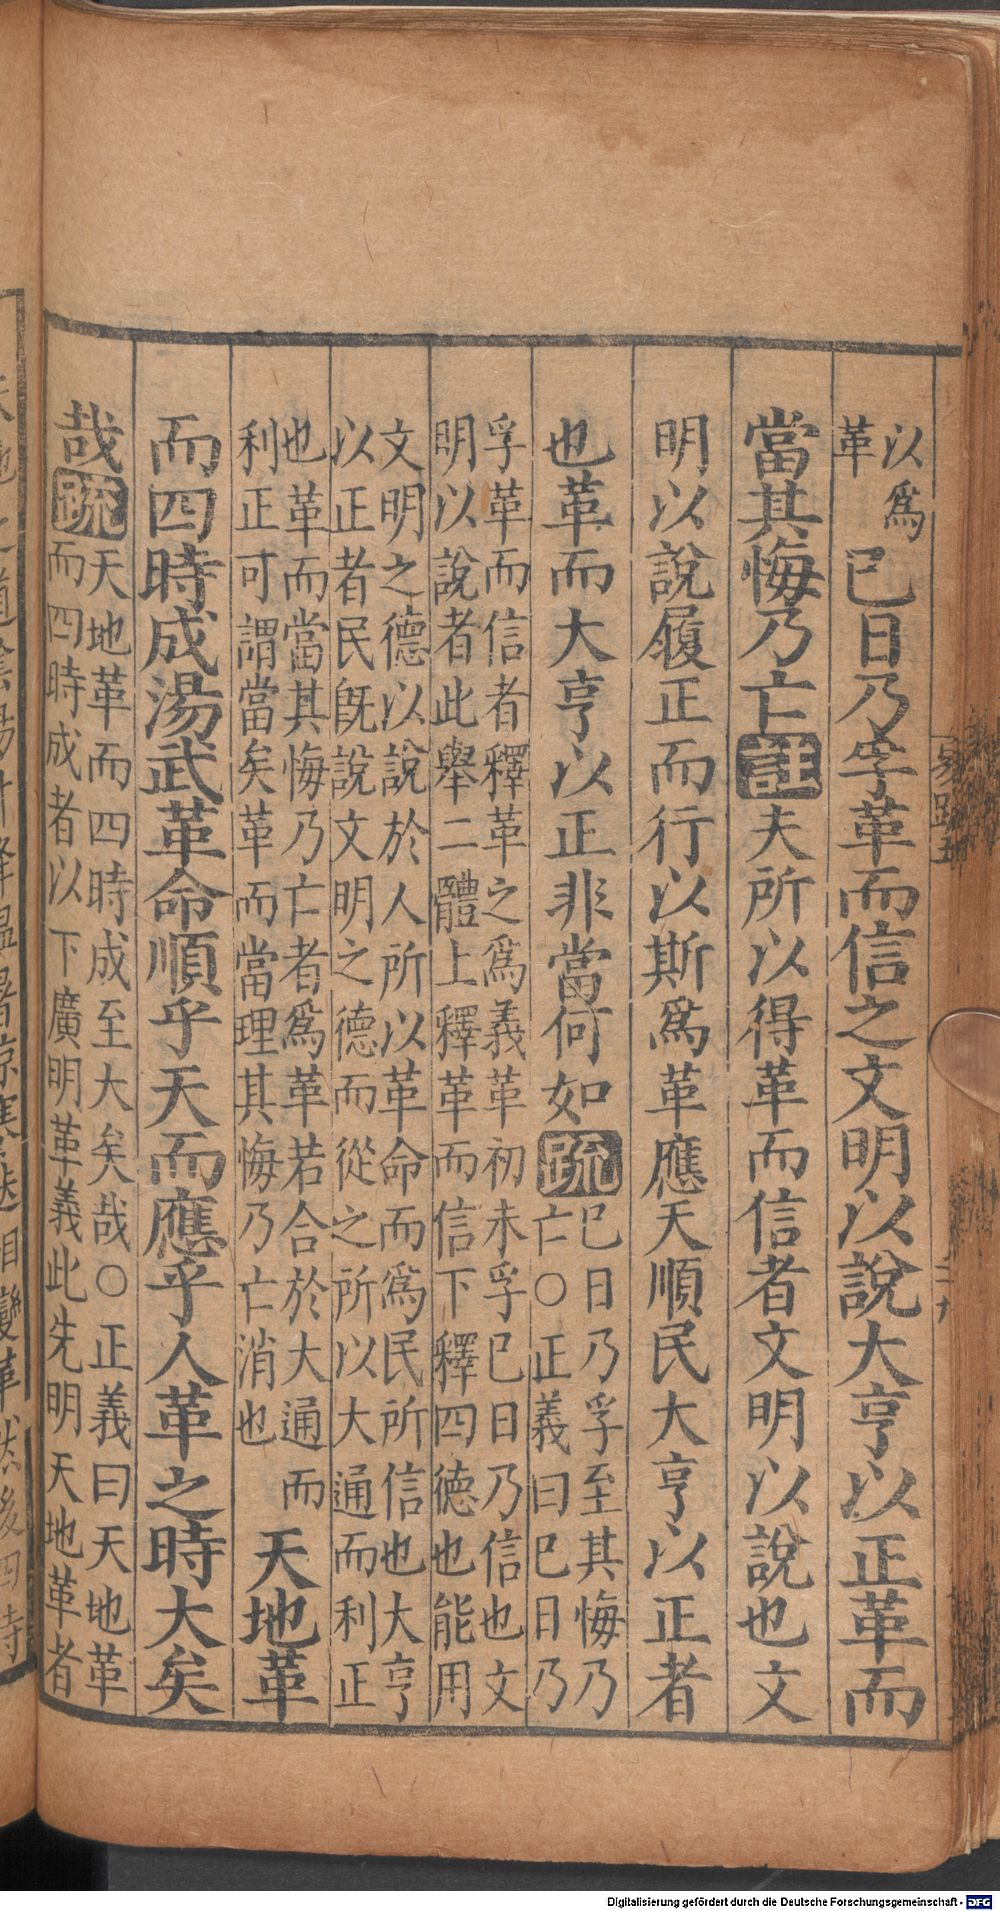 以爲
革
已日乃孚革而信之文明以說大亨以正革而
當其悔乃亡註夫所以得革而信者文明以說也文
明以說履正而行以斯爲革應天順民大亨以正者
也革而大亨以正非當何如疏
巳日乃孚至其悔乃
亡○正義曰巳日乃
孚革而信者釋革之爲義革初未孚巳日乃信也文
明以說者此舉二體上釋革而信下釋四德也能用
文明之德以說於人所以革命而爲民所信也大亨
以正者民旣說文明之德而從之所以大通而利正
也革而當其悔乃亡者爲革若合於大通而
利正可謂當矣革而當理其悔乃亡消也
天地革
而四時成湯武革命順乎天而應乎人革之時大矣
哉疏
天地革而四時成至大矣哉○正義曰天地革
而四時成者以下廣明革義此先明天地革者
易疏五
Digitalisierung gefördert durch die Deutsche Forschungsgemeinschaft - DFG